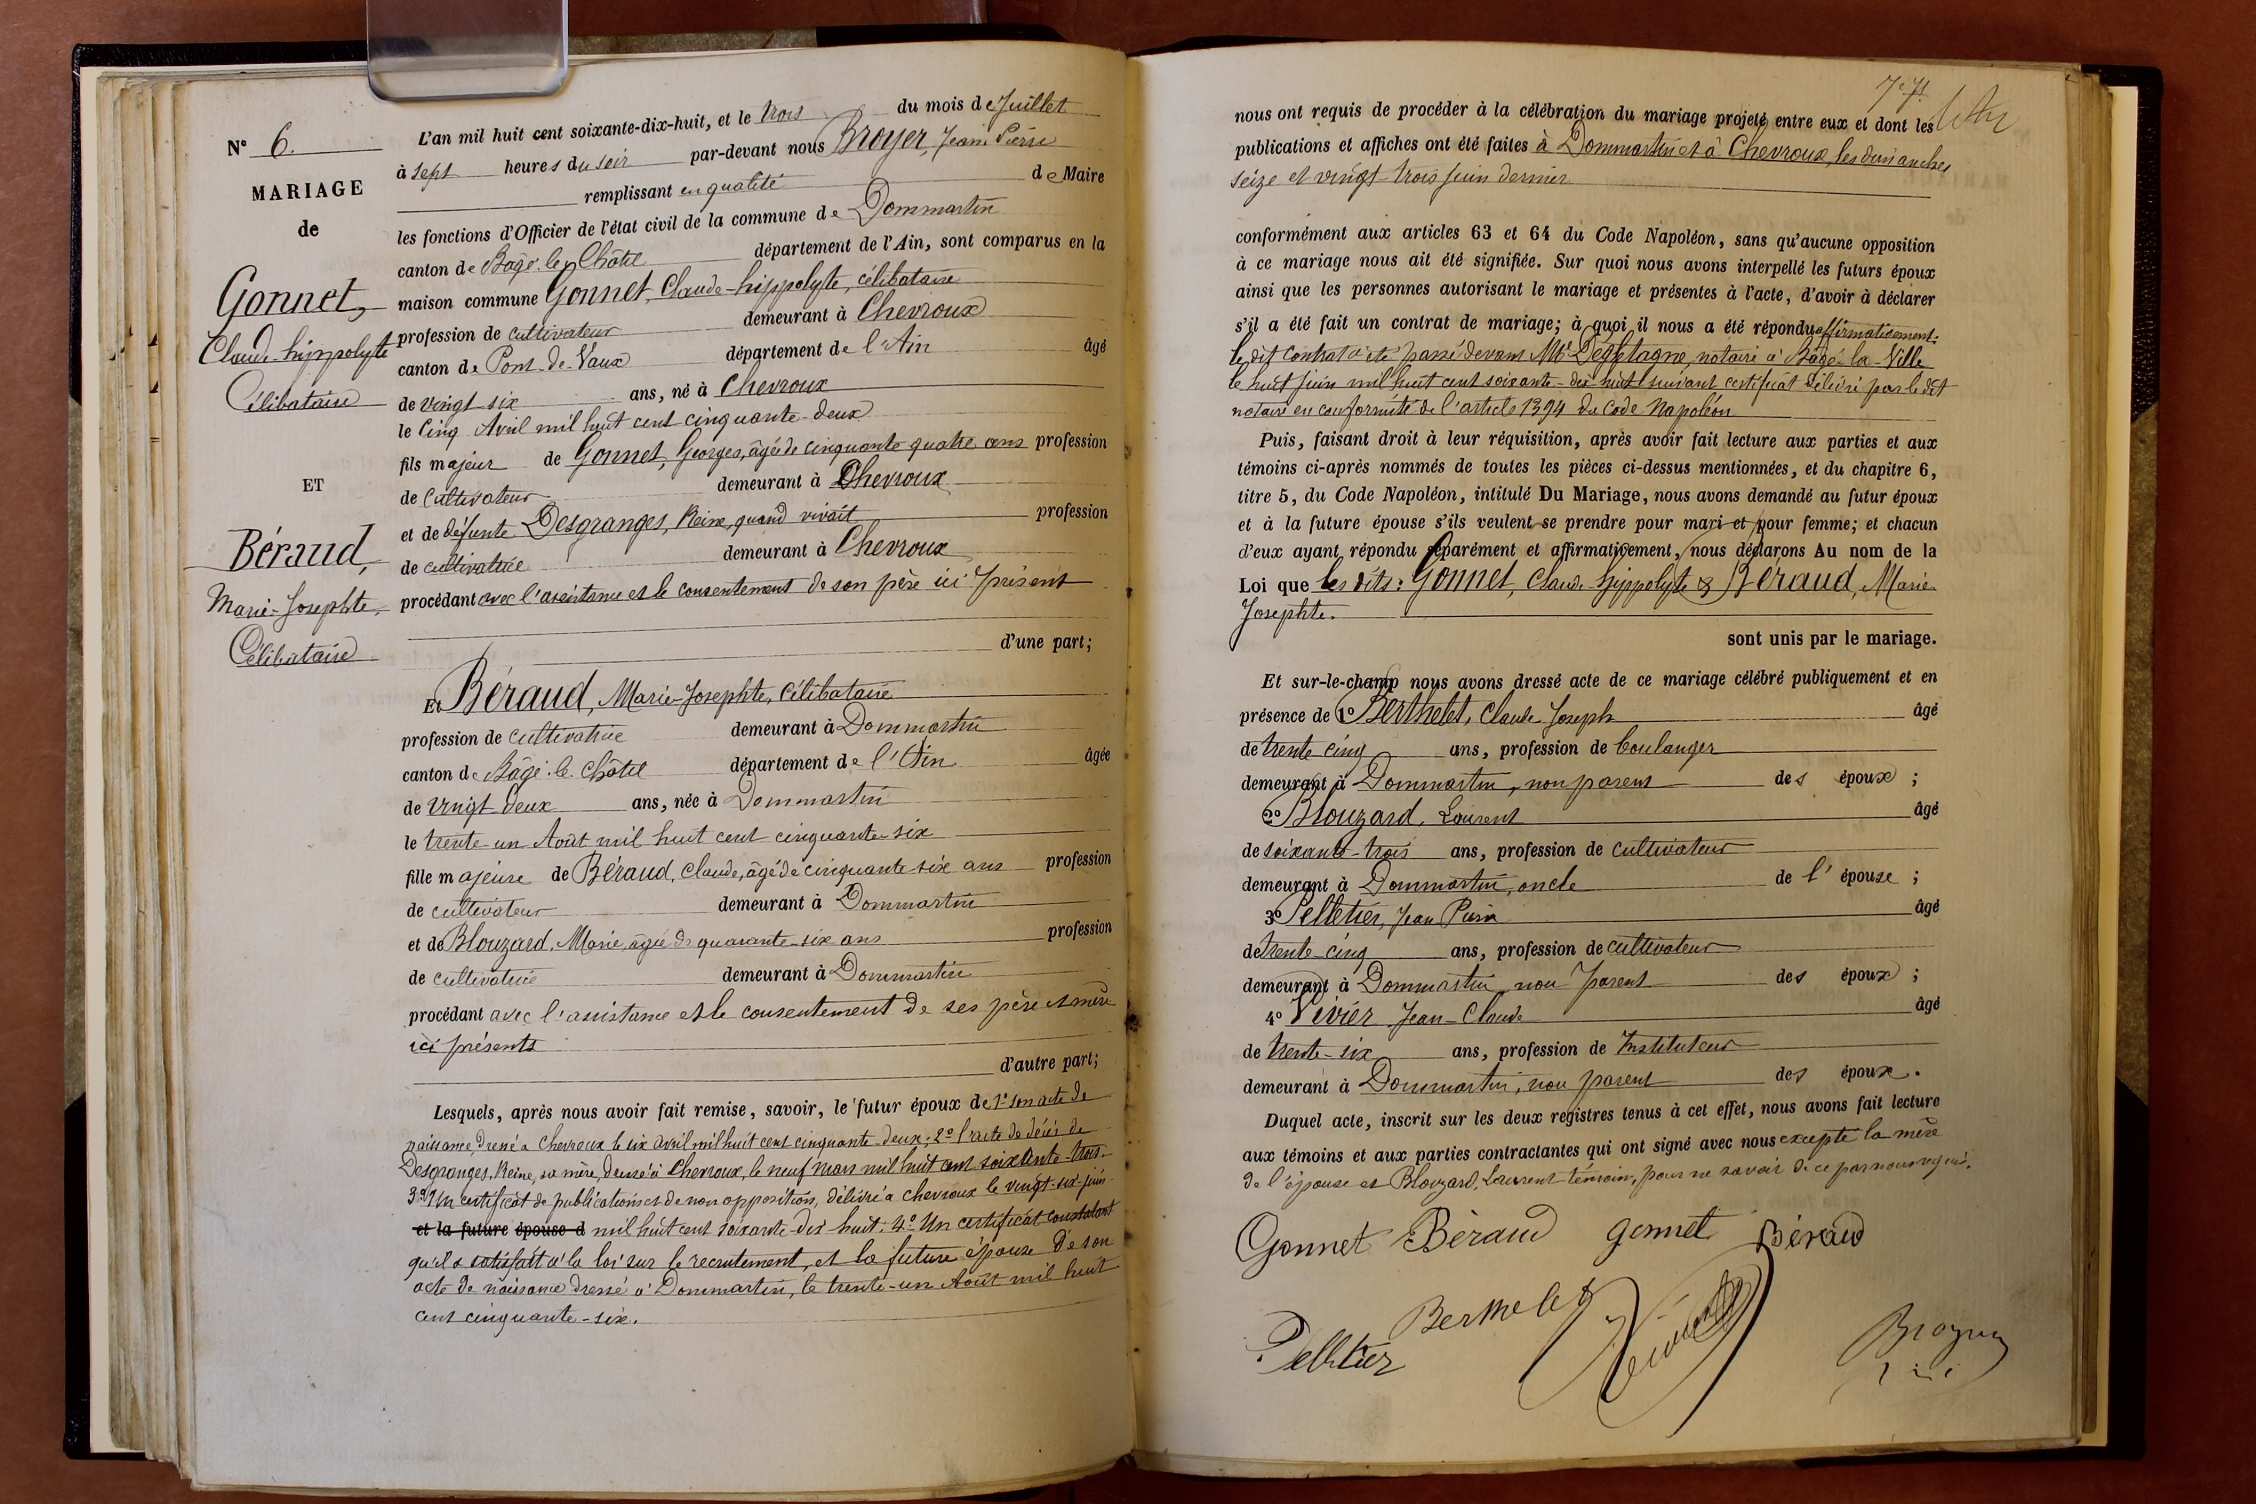 N° 6.
MARIAGE
de
Gonnet,
Claude-hippolyte
Célibataire
ET
Béraud,
Marie-Josephte,
Célibataire
L'an mil huit cent soixante-dix-huit, et le trois du mois de Juillet
à sept heures du soir par-devant nous Broyer, Jean Pierre
remplissant en qualité de Maire
les fonctions d'Officier de l'état civil de la commune de Dommartin
canton de Bâgé-le-Châtel département de l'Ain, sont comparus en la
maison commune Gonnet, Claude-hippolyte, célibataire
profession de cultivateur demeurant à Chevroux
canton de Pont-de-Vaux département de l'Ain âgé
de vingt six ans, né à Chevroux
le Cinq Avril mil huit cent cinquante-deux
fils majeur de Gonnet, Georges, âgé de cinquante quatre ans profession
de Cultivateur demeurant à Chevroux
et de défunte Desgranges, Reine, quand vivait profession
de cultivatrice demeurant à Chevroux
procédant avec l'assistance et le consentement de son père ici présent
d'une part;
Et Béraud, Marie-Josephte, Célibataire
profession de cultivatrice demeurant à Dommartin
canton de Bâgé-le-Châtel département de l'Ain âgée
de vingt deux ans, née à Dommartin
le trente-un Août mil huit cent cinquante-six
fille majeure de Béraud, Claude, âgé de cinquante six ans profession
de cultivateur demeurant à Dommartin
et de Blouzard, Marie, âgée de quarante-six ans profession
de cultivatrice demeurant à Dommartin
procédant avec l'assistance et le consentement de ses père et mère
ici présents
d'autre part;
Lesquels, après nous avoir fait remise, savoir, le futur époux de 1° son acte de
naissance, dressé à Chevroux le six avril mil huit cent cinquante-deux; 2° l'acte de décès de
Desgranges, Reine, sa mère, dressé à Chevroux, le neuf Mars mil huit cent soixante-trois
3° Un certificat de publications et de non opposition, délivré à Chevroux le vingt-six juin
et la future épouse d mil huit cent soixante-dix huit; 4° Un certificat constatant
qu'il a satisfait à la loi sur le recrutement, et la future épouse de son
acte de naissance dressé à Dommartin, le trente-un Août mil huit
cent cinquante-six.
nous ont requis de procéder à la célébration du mariage projeté entre eux et dont les
publications et affiches ont été faites à Dommartin et à Chevroux, les dimanches
seize et vingt-trois juin dernier
conformément aux articles 63 et 64 du Code Napoléon, sans qu'aucune opposition
à ce mariage nous ait été signifiée. Sur quoi nous avons interpellé les futurs époux
ainsi que les personnes autorisant le mariage et présentes à l'acte, d'avoir à déclarer
s'il a été fait un contrat de mariage; à quoi il nous a été répondu affirmativement.
le dit contrat a été passé devant Me notaire à Bâgé-la-Ville
le huit juin mil huit cent soixante-dix huit suivant certificat délivré par le dit
notaire en conformité de l'article 1394 du Code Napoléon
Puis, faisant droit à leur réquisition, après avoir fait lecture aux parties et aux
témoins ci-après nommés de toutes les pièces ci-dessus mentionnées, et du chapitre 6,
titre 5, du Code Napoléon, intitulé Du Mariage, nous avons demandé au futur époux
et à la future épouse s'ils veulent se prendre pour mari et pour femme; et chacun
d'eux ayant répondu séparément et affirmativement, nous déclarons Au nom de la
Loi que les dits: Gonnet, Claude hippolyte & Béraud, Marie
Josephte.
sont unis par le mariage.
Et sur-le-champ nous avons dressé acte de ce mariage célébré publiquement et en
présence de 1° Berthelet, Claude Joseph âgé
de trente cinq ans, profession de boulanger
demeurant à Dommartin, non parent des époux;
2° Blouzard, Laurent âgé
de soixante-trois ans, profession de cultivateur
demeurant à Dommartin, oncle de l'épouse;
3° Pelletier, Jean Pierre âgé
de trente-cinq ans, profession de cultivateur
demeurant à Dommartin non parent des époux;
4° Vivier Jean-Claude âgé
de trente-six ans, profession de Instituteur
demeurant à Dommartin, non parent des époux.
Duquel acte, inscrit sur les deux registres tenus à cet effet, nous avons fait lecture
aux témoins et aux parties contractantes qui ont signé avec nous excepté la mère
de l'épouse et Blouzard, Laurent témoin, pour ne savoir de ce par nous requis.
Gonnet Béraud gonnet Béraud
Berthelet
Pelletier Broyer